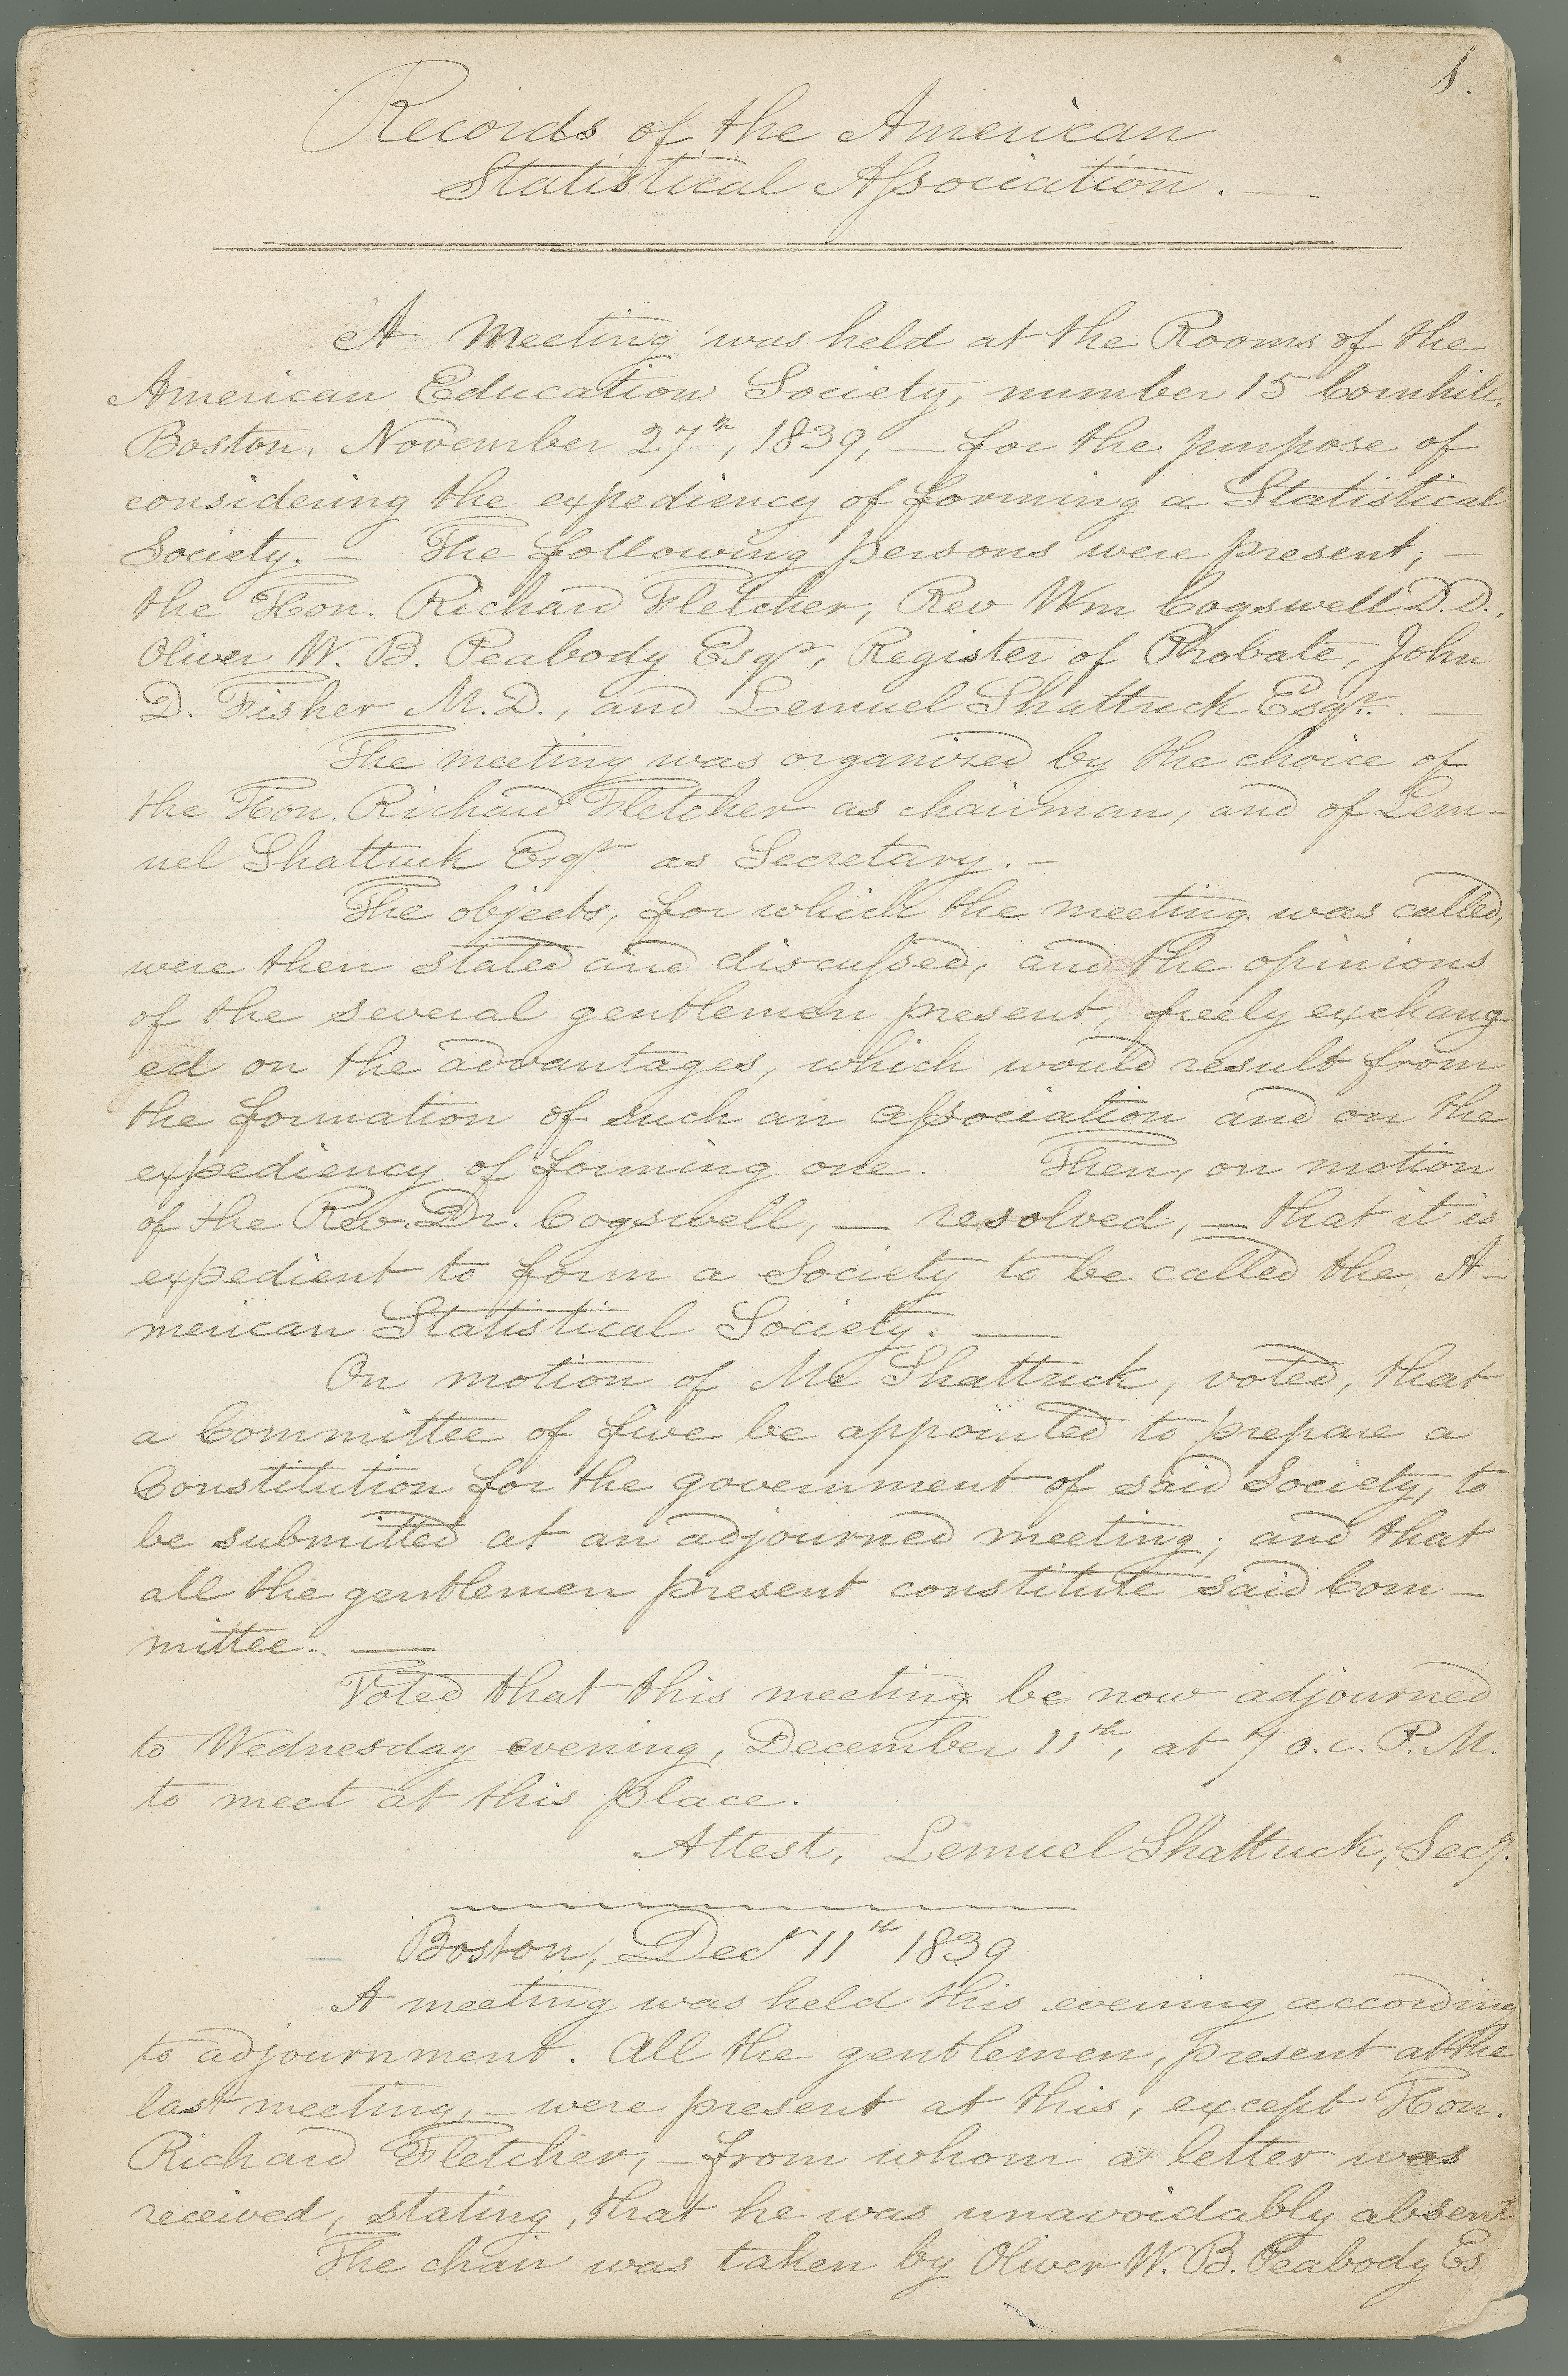 1.
Records of the American
Statistical Association. —
A Meeting was held at the Rooms of the
American Education Society, number 15 Cornhill,
Boston, November 27th, 1839, — for the purpose of
considering the expediency of forming a Statistical
Society. — The following persons were present; —
the Hon. Richard Fletcher, Rev Wm Cogswell D.D.,
Oliver W. B. Peabody Esqr, Register of Probate, John
D. Fisher M.D., and Lemuel Shattuck Esqr. —
The meeting was organized by the choice of
the Hon. Richard Fletcher as chairman, and of Lem-
uel Shattuck Esqr as Secretary. —
The objects, for which the meeting was called,
were then stated and discussed, and the opinions
of the several gentlemen present, freely exchang
ed on the advantages, which would result from
the formation of such an association and on the
expediency of forming one. Then, on motion
of the Rev. Dr. Cogswell, — resolved, — that it is
expedient to form a Society to be called the A-
merican Statistical Society. —
On motion of Mr Shattuck, voted, that
a Committee of five be appointed to prepare a
Constitution for the government of said Society, to
be submitted at an adjourned meeting; and that
all the gentlemen present constitute said Com-
mittee. —
Voted that this meeting be now adjourned
to Wednesday evening, December 11th, at 7 o.c. P.M.
to meet at this place.
Attest, Lemuel Shattuck, Secy.
Boston, Decr 11th 1839
A meeting was held this evening according
to adjournment. All the gentlemen, present at the
last meeting, — were present at this, except Hon.
Richard Fletcher, — from whom a letter was
received, stating, that he was unavoidably absent
The chair was taken by Oliver W. B. Peabody Es